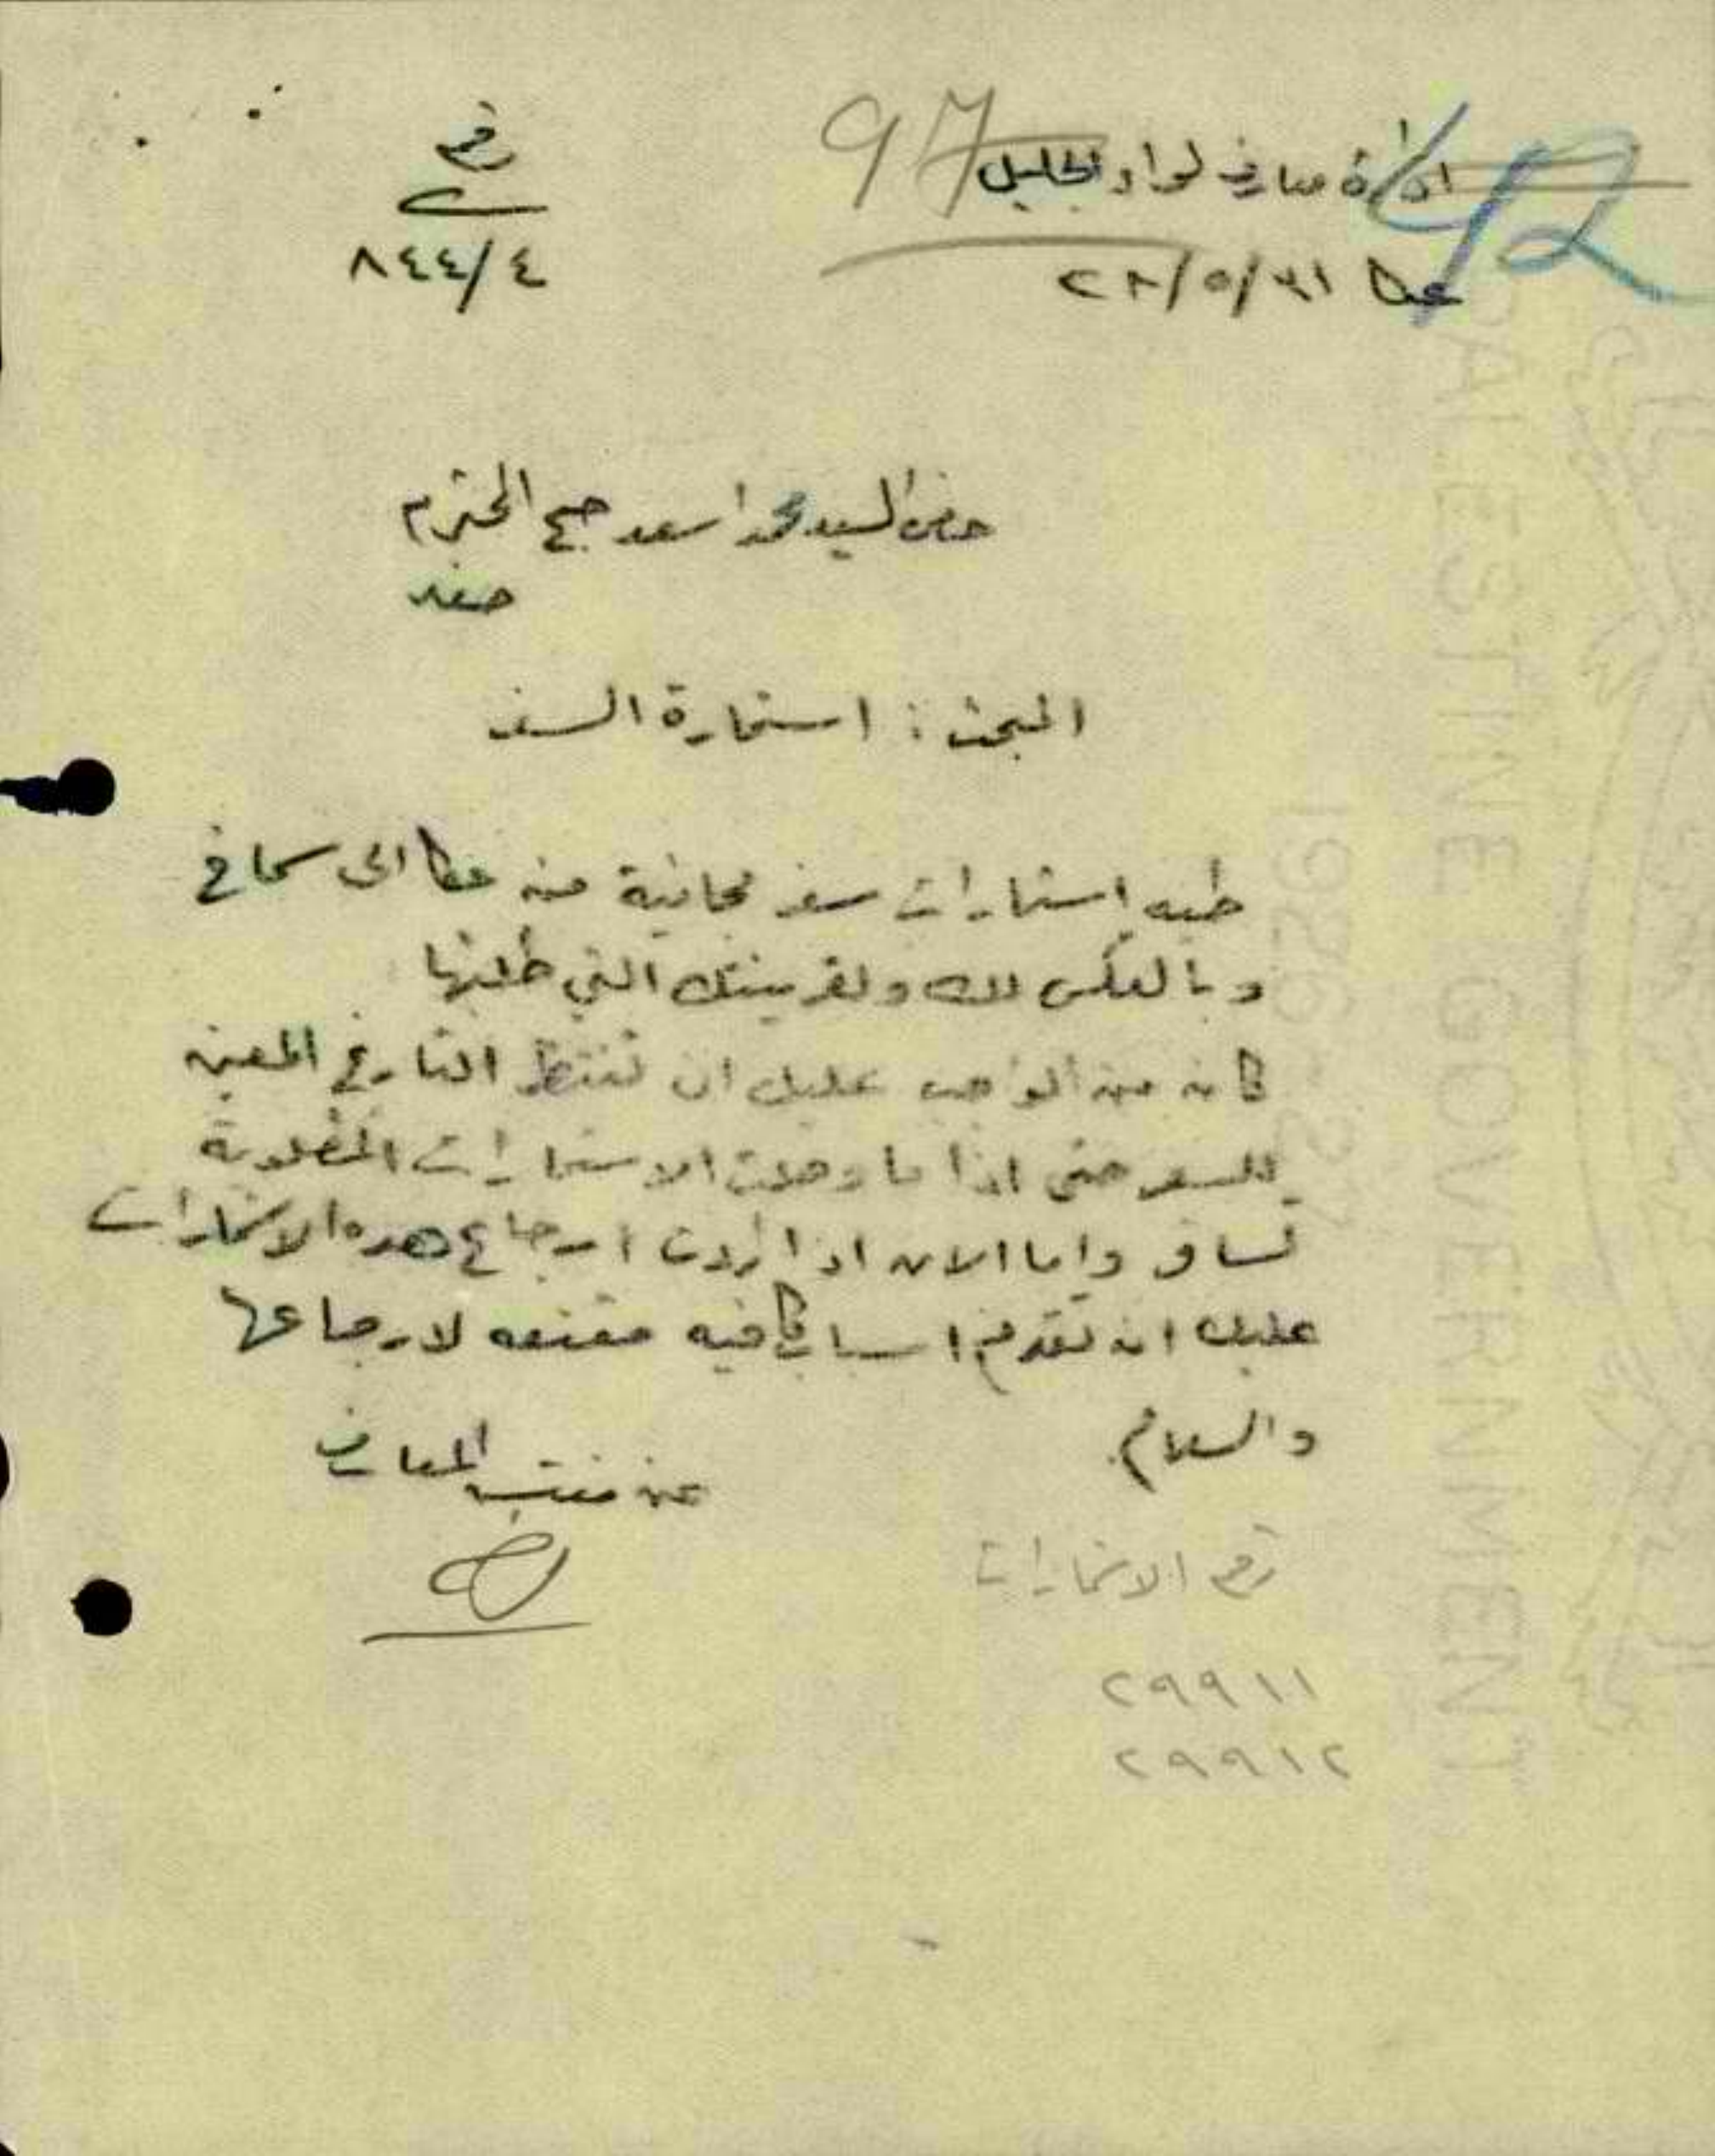 97
42
ادارة معارف لواء الجليل
رقم
عكا ٣١/٥/٢٨
٨٤٤/٤
حضرة السيد محمد اسعد صبح المحترم
صفد
المبحث : استمارة السفر
طيه استمارات سفر مجانية من عكا الى سماخ
وبالعكس لك ولقرينتك التي طلبتها
كان من الواجب عليك ان تنتظر التاريخ المعين
للسفر حتى اذا ما وصلت الاستمارات المطلوبة
تسافر واما الان اذا اردت ارجاع هذه الاستمارات
عليك ان تقدم اسباب كافيه مقنعه لارجاعها
والسلام
عن مفتش المعارف
رقم الاستمارات
٢٩٩١١
٢٩٩١٢
PALESTINE GOVERNMENT